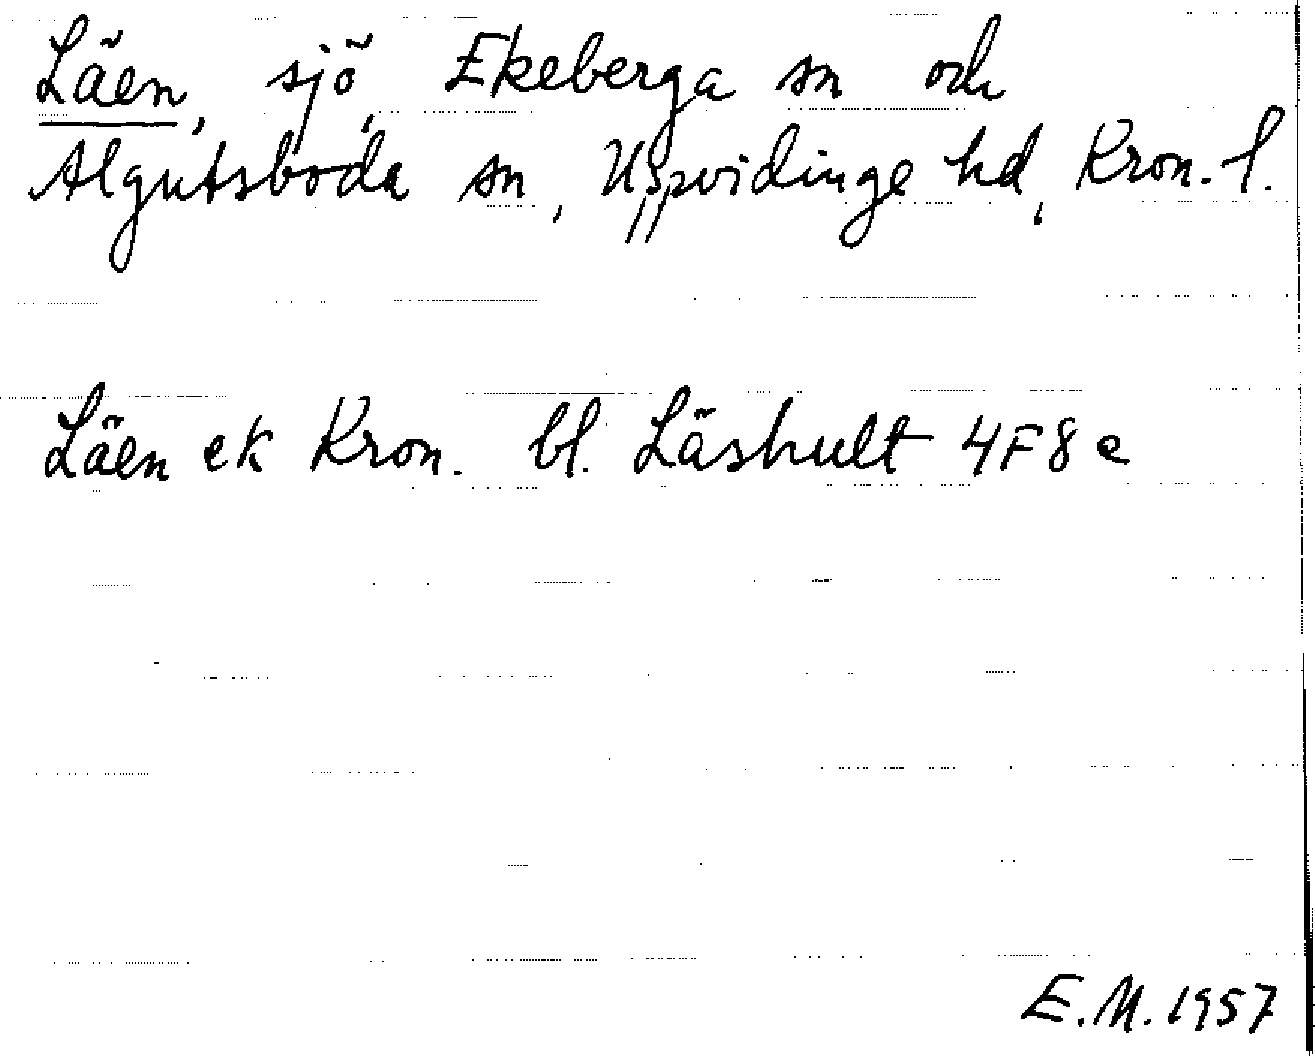 Läen, sjö, Ekeberga sn och
Algutsboda sn, Uppvidinge hd, Kron. l.
Läen ek Kron. bl. Läshult 4F8e
E.M. 1957